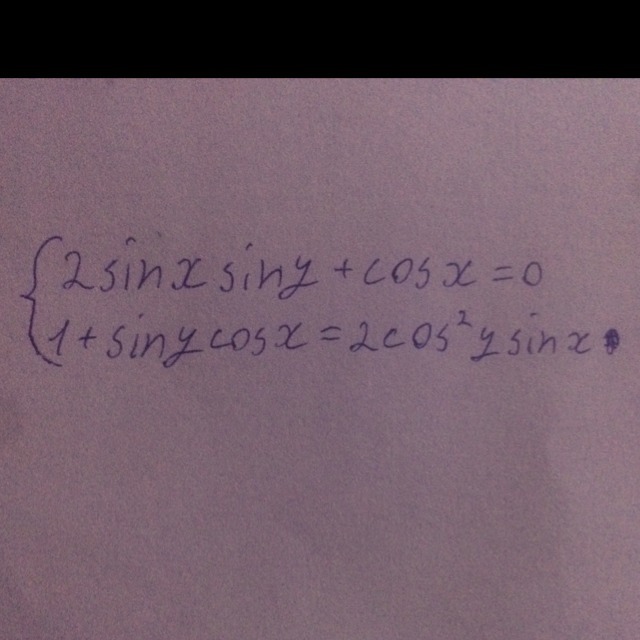 2sinx siny + cosx = 0
1 + siny cosx = 2cos²y sinx